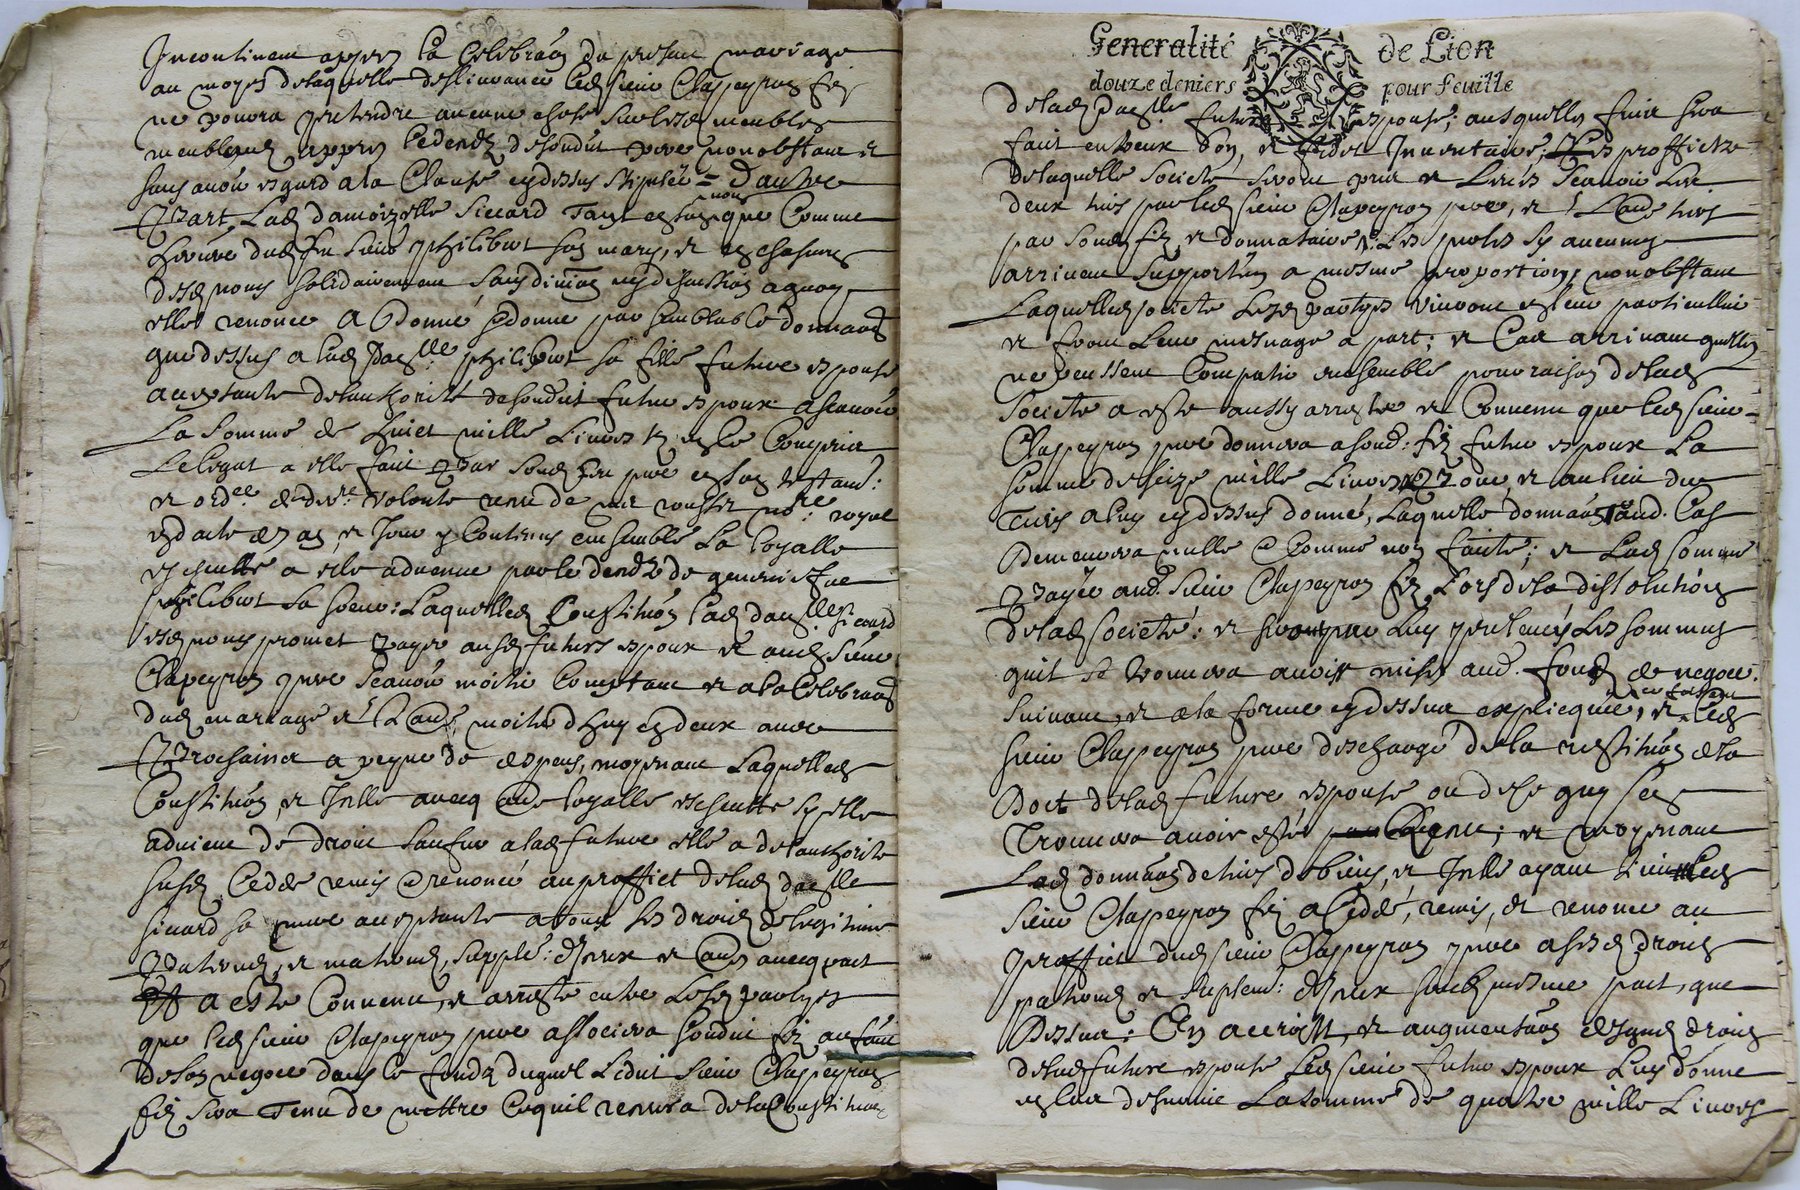 Incontinent appres la Celebraõn du present mariage
au moyen delaquelle deslivrance led sieur Clappeyron filz
ne pourra pretendre aucune chose sur lesd meubles
meublans appres le deceds desondit pere nonobstant et
sans avoir esgard a la Clause cydessus stipulée = Dautre
part, Lad damoizelle Siccard Tant en son nom que Comme
heritiere dud feu sieur philibert son mary, et en chascuns
desd noms solidairement sans division ny discussion aquoy
elle renonce a Donné & donne par semblable donnaõn
que dessus a lad Daelle philibert sa fille future espouse
acceptante delauthorité desondit futur espoux ascavoir
La somme de huict mille Livres en ce Compris
Le legat a elle faict par sond feu pere en son testamt:
et ordce de dre volonté receu de me not.re royal
en datte des an, et Jour y Contenus ensemble La loyalle
escheutte a elle advenue par le deceds de genevieſve
philibert sa soeur: Laquelled Constituõn lad daelle Sicard
esd noms promet payer ausd futurs espoux et aud sieur
Clapeyron pere scavoir moitié Comptant et a la Celebraõn
dud mariage et l'autre moitié d'huy en deux ans
prochains a peyne de despens, moyenant Laquelled
Constituõn, et Icelle avecq autre loyalle escheutte sy elle
advient de droit Laditte future elle a de lauthorité
susd Cedde remis & renoncé au proffict delad daelle
sicard sa mere acceptante a tous ses droicts de legitime
paternels, et maternels, supplet: d'Iceux et aus avecq pact
a esté Convenu, et arresté entre Lesd partyes
que led sieur Clapeyron pere associera sondit filz au fait
deson negoce dans le fonds duquel Ledit sieur Clappeyron
filz sera Tenu de mettre Ce quil recevra delad Constituõn
Generalité de Lion
douze deniers pour feuille
delad Daelle future espouse; ausquelles fins sera
faict entreux bon, et fidel Inventaire; Les proffictz
delaquelle societé seront pris et Levés scavoir Les
deux tiers par led sieur Clapeyron pere, et l'autre tiers
par sond filz, et donnataire, & Les pertes sy aucunes
arrivent supportées a mesme proportion, nonobstant
Laquelled societé Lesd partyes vivront en leur particullier
et feront Leur mesnage a part; et Cas arrivant quilz
ne peussent Compatir ensemble pour raison delad
societé a esté aussy arresté et Convenu que led sieur
Clappeyron pere donnera a sond: filz futur espoux La
somme de seize mille Livres pour, et au lieu du
Tiers a luy cydessus donné, Laquelle donnaõn aud. Cas
Demeurera nulle & Comme non faicte; et Lad somme
payée aud. sieur Clapeyron filz Lors de la dissolution
delad societé: et sera par Luy prelevés Les sommes
quil se trouvera avoir mises aud. fonds de negoce.
suivant, et a la forme cydessus expliequée, et led
sieur Clappeyron pere deschargé de la restituõn de la
Dot delad future espouse ou de ce quy sera
Trouvera avoir esté; et moyenant
Lad donnaõn de tiers de biens, et Icelle ayant Lieu led
sieur Clappeyron filz a Ceddé, remis, et renoncé au
proffict dud sieur Clappeyron pere a sesd droicts
paternels et suplemt: d'Iceux soubz mesme pact, que
Dessus: En accroist, et augmentaõn desquels droicts
delad future espouse led sieur futur espoux Luy donne
en Cas de survie La somme de quatre mille Livres